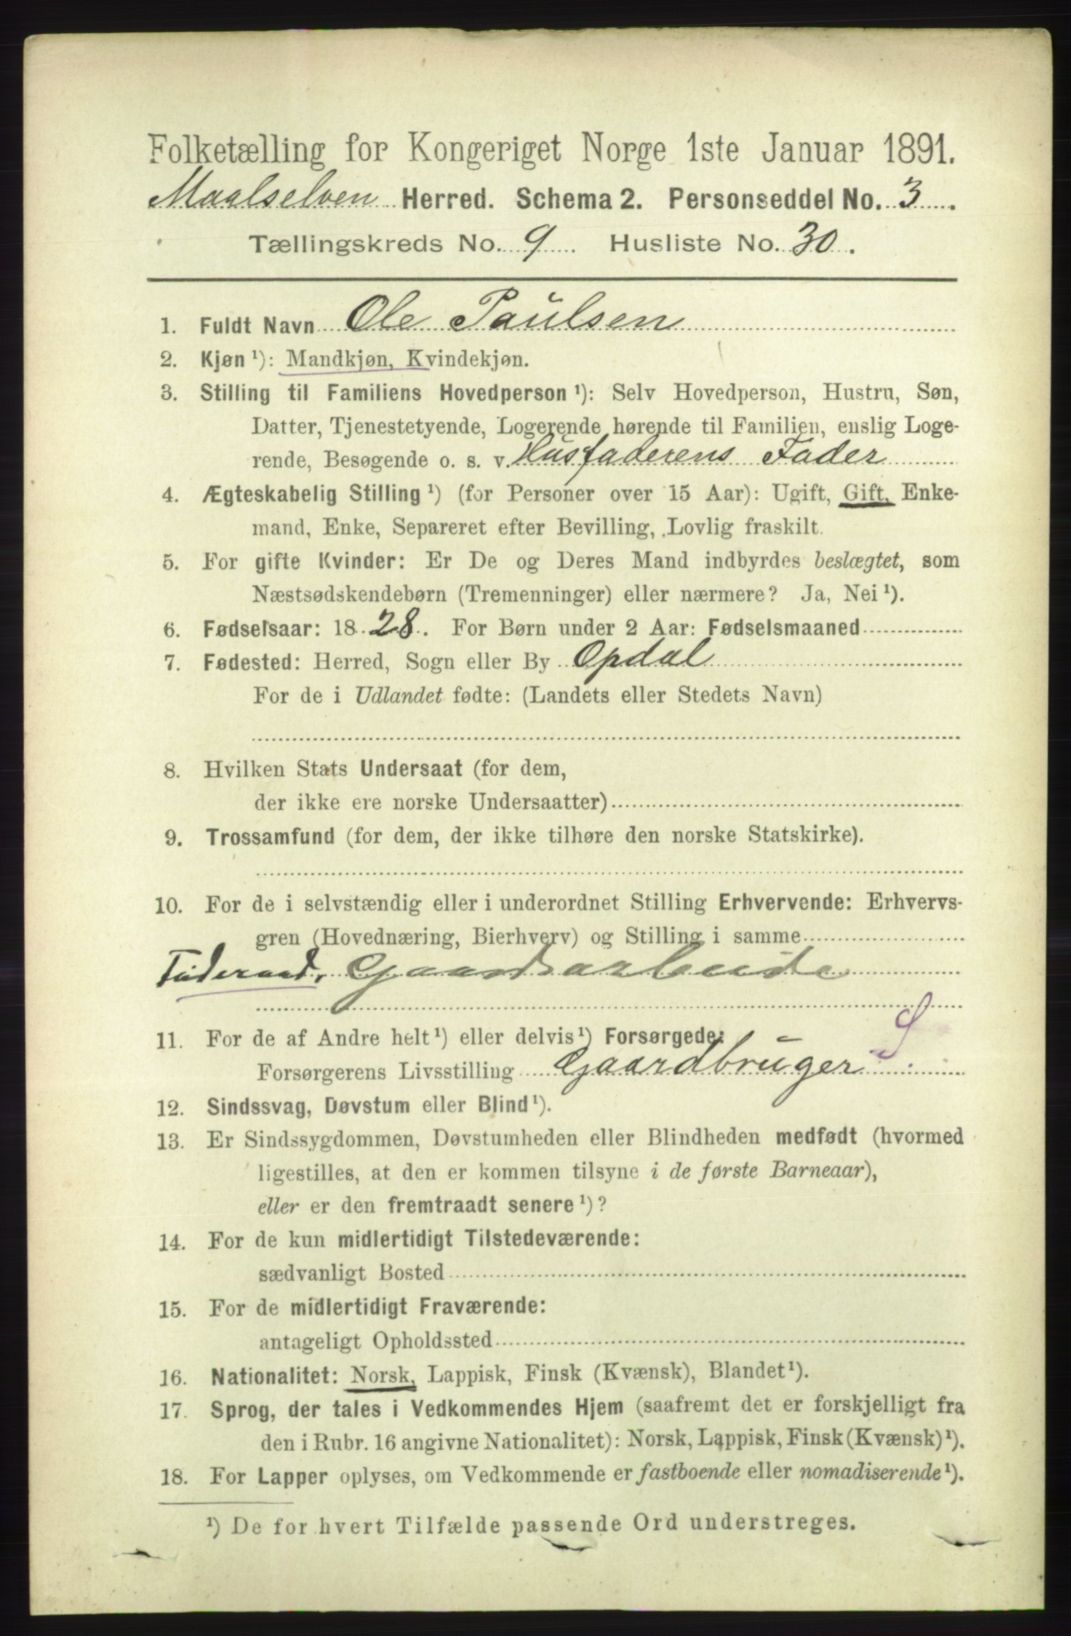 Folketælling for Kongeriget Norge 1ste Januar 1891.
Maalselven Herred. Schema 2. Personseddel No. 3.
Tællingskreds No. 9 Husliste No. 30.
1. Fuldt Navn Ole Paulsen
2. Kjøn ¹): Mandkjøn, Kvindekjøn.
3. Stilling til Familiens Hovedperson ¹): Selv Hovedperson, Hustru, Søn,
Datter, Tjenestetyende, Logerende hørende til Familien, enslig Loge-
rende, Besøgende o. s. v. Husfaderens Fader
4. Ægteskabelig Stilling ¹) (for Personer over 15 Aar): Ugift, Gift, Enke-
mand, Enke, Separeret efter Bevilling, Lovlig fraskilt.
5. For gifte Kvinder: Er De og Deres Mand indbyrdes beslægtet, som
Næstsødskendebørn (Tremenninger) eller nærmere? Ja, Nei ¹).
6. Fødselsaar: 1828. For Børn under 2 Aar: Fødselsmaaned
7. Fødested: Herred, Sogn eller By Opdal
For de i Udlandet fødte: (Landets eller Stedets Navn)
8. Hvilken Stats Undersaat (for dem,
der ikke ere norske Undersaatter)
9. Trossamfund (for dem, der ikke tilhøre den norske Statskirke).
10. For de i selvstændig eller i underordnet Stilling Erhvervende: Erhvervs-
gren (Hovednæring, Bierhverv) og Stilling i samme
Føderaad, Gaardsarbeide
11. For de af Andre helt ¹) eller delvis ¹) Forsørgede: S
Forsørgerens Livsstilling Gaardbruger
12. Sindssvag, Døvstum eller Blind ¹).
13. Er Sindssygdommen, Døvstumheden eller Blindheden medfødt (hvormed
ligestilles, at den er kommen tilsyne i de første Barneaar),
eller er den fremtraadt senere ¹)?
14. For de kun midlertidigt Tilstedeværende:
sædvanligt Bosted
15. For de midlertidigt Fraværende:
antageligt Opholdssted
16. Nationalitet: Norsk, Lappisk, Finsk (Kvænsk), Blandet ¹).
17. Sprog, der tales i Vedkommendes Hjem (saafremt det er forskjelligt fra
den i Rubr. 16 angivne Nationalitet): Norsk, Lappisk, Finsk (Kvænsk) ¹).
18. For Lapper oplyses, om Vedkommende er fastboende eller nomadiserende ¹).
¹) De for hvert Tilfælde passende Ord understreges.